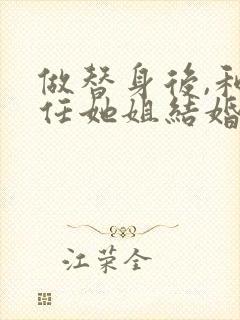 做替身後,和
任她姐結婚
江荣全